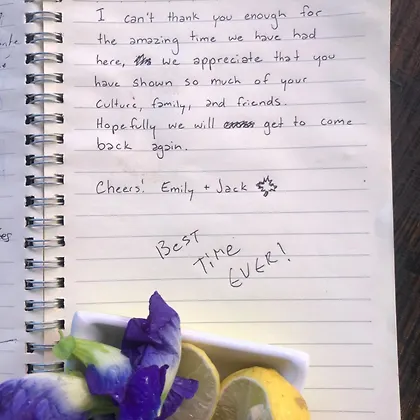 I can't thank you enough for
the amazing time we have had
here, we appreciate that you
have shown so much of your
culture, family, and friends.
Hopefully we will get to come
back again.
Cheers! Emily + Jack
BEST
TIME
EVER!